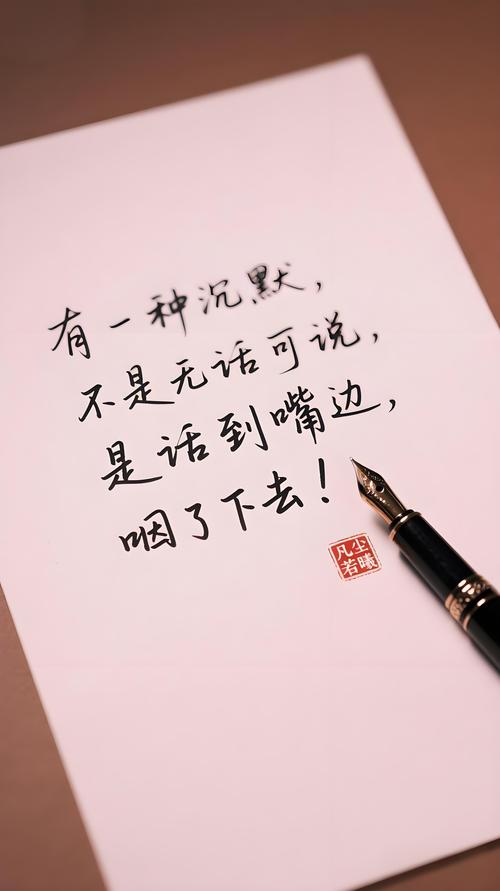 有一种沉默，
不是无话可说，
是话到嘴边，
咽了下去！
凡尘
若曦